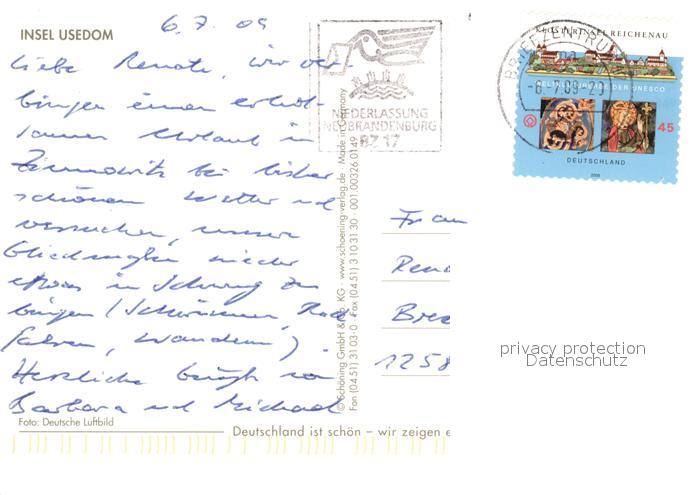 INSEL USEDOM
6.7.09
Liebe Renate, wir ver-
bringen einen erhol-
samen Urlaub in
Zinnowitz bei bisher
schönem Wetter und
versuchen, unsere
Gliedmaßen wieder
etwas in Schwung zu
bringen (Schwimmen, Rad
fahren, Wandern).
Herzliche Grüße von
Barbara und Michael
Foto: Deutsche Luftbild
Deutschland ist schön – wir zeigen e
© Schöning GmbH & Co. KG · www.schoening-verlag.de · Made in Germany
Fon (04 51) 31 03-0 · Fax (04 51) 3 10 31 30 · 001.00326.0149
NIEDERLASSUNG
NEUBRANDENBURG
87 17
BRIEFZENTRUM
KLOSTERINSEL REICHENAU
WELTKULTURERBE DER UNESCO
45
DEUTSCHLAND
2008
Frau
Rena
Bree
1258
privacy protection
Datenschutz